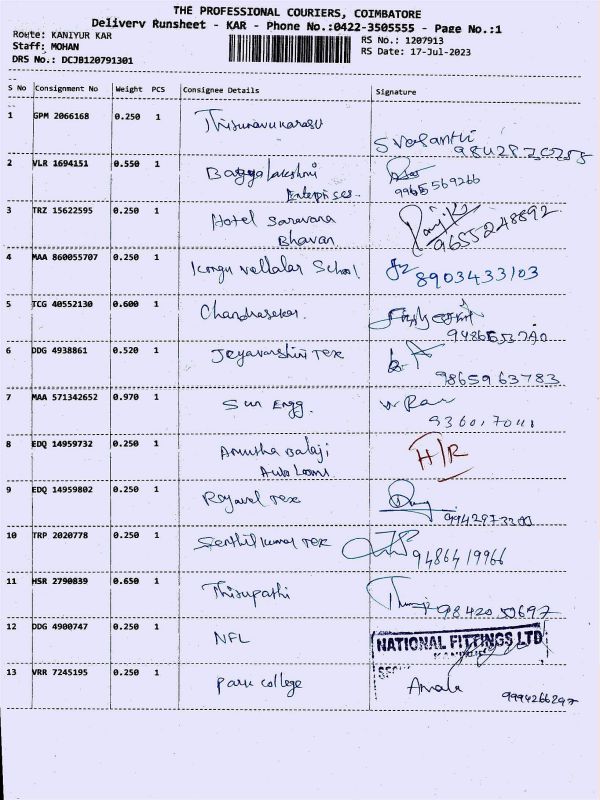 THE PROFESSIONAL COURIERS, COIMBATORE
Delivery Runsheet - KAR - Phone No.:0422-3505555 - Page No.:1
Route: KANIYUR KAR
RS No.: 1207913
Staff: MOHAN
RS Date: 17-Jul-2023
DRS No.: DCJB120791301
S No Consignment No Weight PCS Consignee Details Signature
1 GPM 2066168 0.250 1 Thirunavukarasu
S Vasanthi
2 VLR 1694151 0.550 1 Bagyalakshmi
Enterprises. 9965569266
3 TRZ 15622595 0.250 1 Hotel Saravana
Bhavan. 9655248892
4 MAA 860055707 0.250 1 Kongu vellalar School 8903433103
5 TCG 40552130 0.600 1 Chandrasekar
6 DDG 4938861 0.520 1 Jeyavarshini Tex
9865963783
7 MAA 571342652 0.970 1 Sun Engg.
8 EDQ 14959732 0.250 1 Amutha Balaji H/R
Auto Looms
9 EDQ 14959802 0.250 1 Rajavel Tex
9942973300
10 TRP 2020778 0.250 1 Senthilkumar Tex 9486419966
11 HSR 2790839 0.650 1 Thirupathi
12 DDG 4900747 0.250 1 NFL NATIONAL FITTINGS LTD
13 VRR 7245195 0.250 1 Park College Amala
9994266297